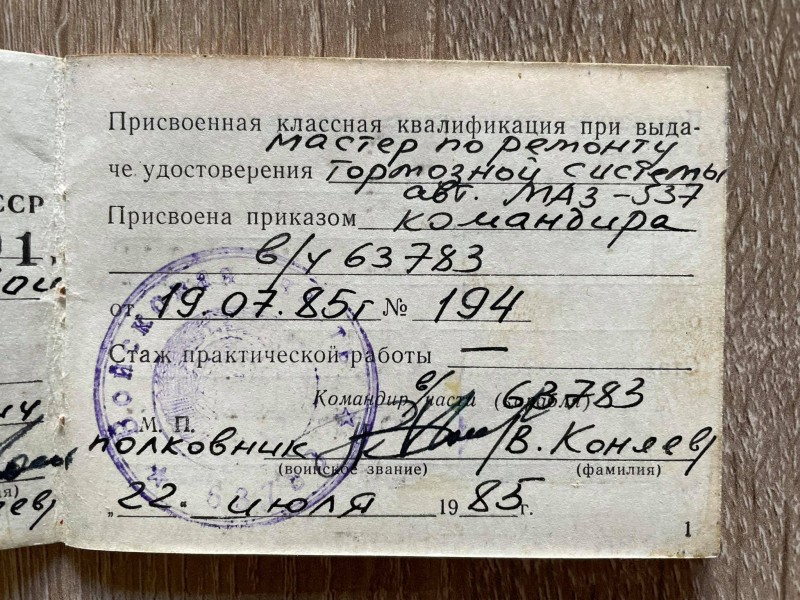 Присвоенная классная квалификация при выда-
мастер по ремонту
че удостоверения тормозной системы
авт. МАЗ-537
Присвоена приказом командира
в/ч 63783
от 19.07.85г № 194
Стаж практической работы —
Командир части
в/ч 63783
М. П.
полковник В. Коняев
(воинское звание) (фамилия)
„22“ июля 1985г.
1
ССР
1,